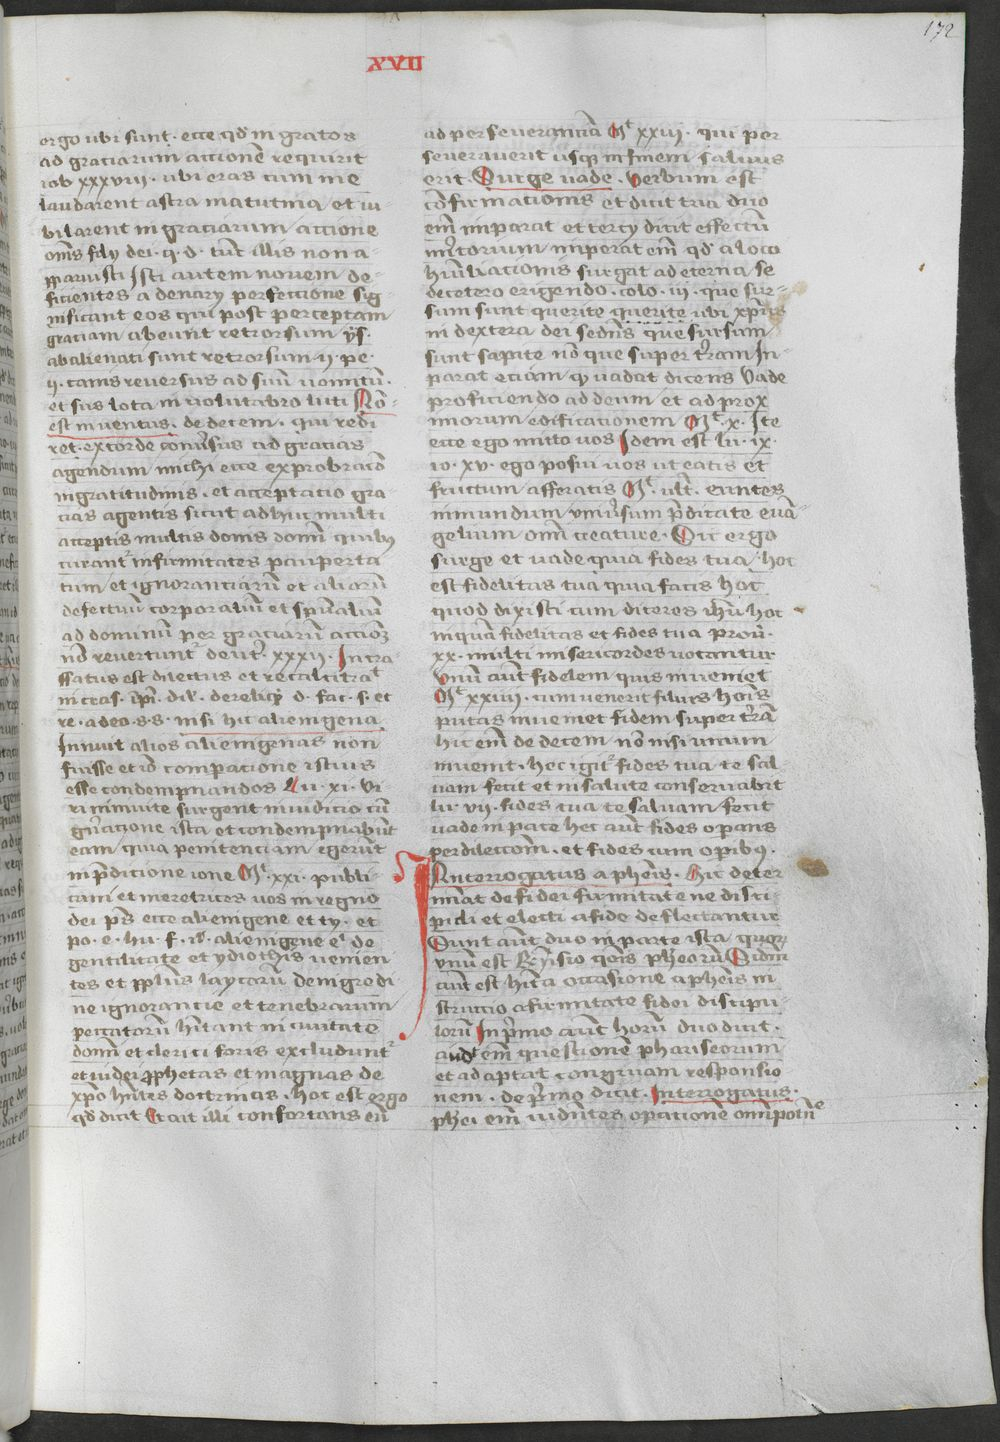 172
XVII
ergo ubi sunt. ecce qd' ingratos
ad graciarum actionē requirit
iob xxxviii. ubi eras cum me
laudarent astra matutina et iu
bilarent in graciarum actione
om̄s filij dei. q. d. tūc illis non a
pparuisti Isti autem novem de
ficientes a denarij perfectione sig
nificant eos qui post perceptam
graciam abeunt retrorsum ys.
abalienati sunt retrorsum. ii. pe.
ii. canis reversus ad suū vomitū.
et sus lota in volutabro luti Nō
est inventus. de decem. qui redi
ret. ex corde cōversus ad gracias
agendum michi ecce exprobracō
ingratitudinis. et acceptacio gra
cias agentis sicut adhuc multi
acceptis multis donis domī quibus
curant' infirmitates pauperta
tum et ignoranciarū et aliorū
defectuū corporaliū et spūaliū
ad dominū per graciarū actiōz
nō revertunt' deut'. xxxii. Incra
ssatus est dilectus et recalcitrat
incras. īpī. dil. dereliq' d. fac. s. et
re. a deo. s. s. nisi hic alienigena
Innuit alios alienigenas non
fuisse et iō compacione istius
esse condempnandos Lu. xi. vi
ri ninivite surgent in iudicio cū
gn'atione ista et condempnabūt
eam quia penitenciam egerūt
in p̄dicatione ione Mt xxi. publi
cani et meretrices vos in regno
dei p̄s ecce alienigene et ty. et
po. e. hu. f. il'. alienigene .i. de
gentilitate et ydiothis venien
tes et pplūs laycarū de nigredi
ne ignorancie et tenebrarum
peccatorū h̄itant in civitate
domī et clerici foris excludunt'
et iudei pphetas et magnas de
xp̄o hn̄tes doctrinas. hoc est ergo
qd' dicit Et ait illi confortans eū
ad perseveranciā Mt xxiiii. qui per
severaverit usq in finem salvus
erit. Surge vade. Verbum est
cōfirmationis et dicit tria duo
em̄ imparat et tercij dicit effectū
m̄itorium imperat em̄ qd' a loco
humiliacionis surgat ad eterna se
decetero erigendo. colo. iii. que sur
sum sunt querite querite ubi xp̄us
in dextera dei sedn̄s que sursum
sunt sapite nō que super t'ram In
parat eciam q' vadat dicens Vade
proficiendo ad deum et ad prox
imorum edificationem Mt. x. Ite
ecce ego mitto vos Idem est lu. ix.
io. xv. ego posui vos ut eatis et
fructum afferatis Mt. ult'. euntes
in mundum vniv'sum p̄dicate evā
gelium omī creature. Dic ergo
surge et vade quia fides tua. hoc
est fidelitas tua quia facis hoc
quod dixisti cum diceres ih̄u hoc
inquā fidelitas et fides tua prov'.
xx. multi misericordes vocantur
Vnū aūt fidelem quis inveniet
Mt xxiiii. cum venerit filius hoīs
putas inveniet fidem super t'rā
hic em̄ de decem nō nisi unum
invenit. hec igit' fides tua te sal
vam fecit et in salute conservabit
lu. vii. fides tua te salvam fecit
vade in pace hec aūt fides opans
per dilectōm. et fides cum opibus.
Interrogatus a pheis. Hic deter
minat de fidei firmitate ne disci
puli et electi a fide deflectantur
Sunt aūt duo in parte ista quor
vnū est Rn̄sio qōnis pheorū Scdm
aūt est h̄ita occasione a pheis in
structio a firmitate fidei discipu
lorū In p'mo aūt horū duo dicit.
audit em̄ questionē phariseorum
et adaptat congruam responsio
nem. de p'mo dicit. Interrogatus.
phei em̄ vidn̄tes opationē omīpotn̄e